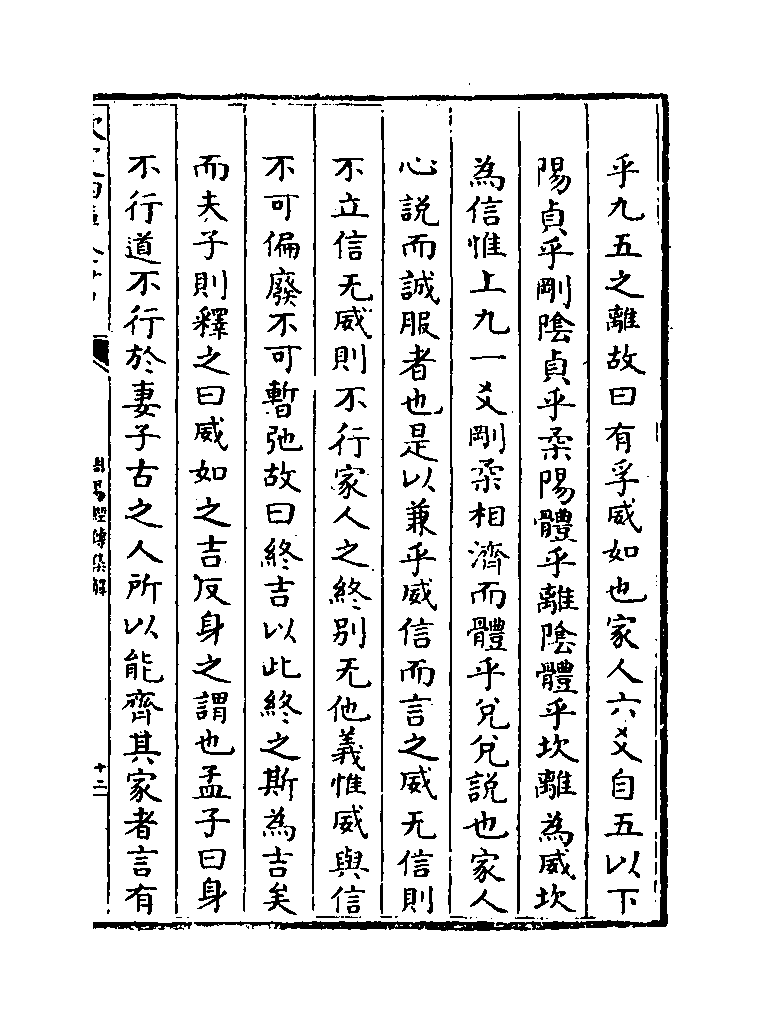 乎九五之離故曰有孚威如也家人六爻自五以下
陽貞乎剛陰貞乎柔陽體乎離陰體乎坎離為威坎
為信惟上九一爻剛柔相濟而體乎兌兌說也家人
心說而誠服者也是以兼乎威信而言之威无信則
不立信无威則不行家人之終別无他義惟威與信
不可偏廢不可暫弛故曰終吉以此終之斯為吉矣
而夫子則釋之曰威如之吉反身之謂也孟子曰身
不行道不行於妻子古之人所以能齊其家者言有
周易經傳集解
十二